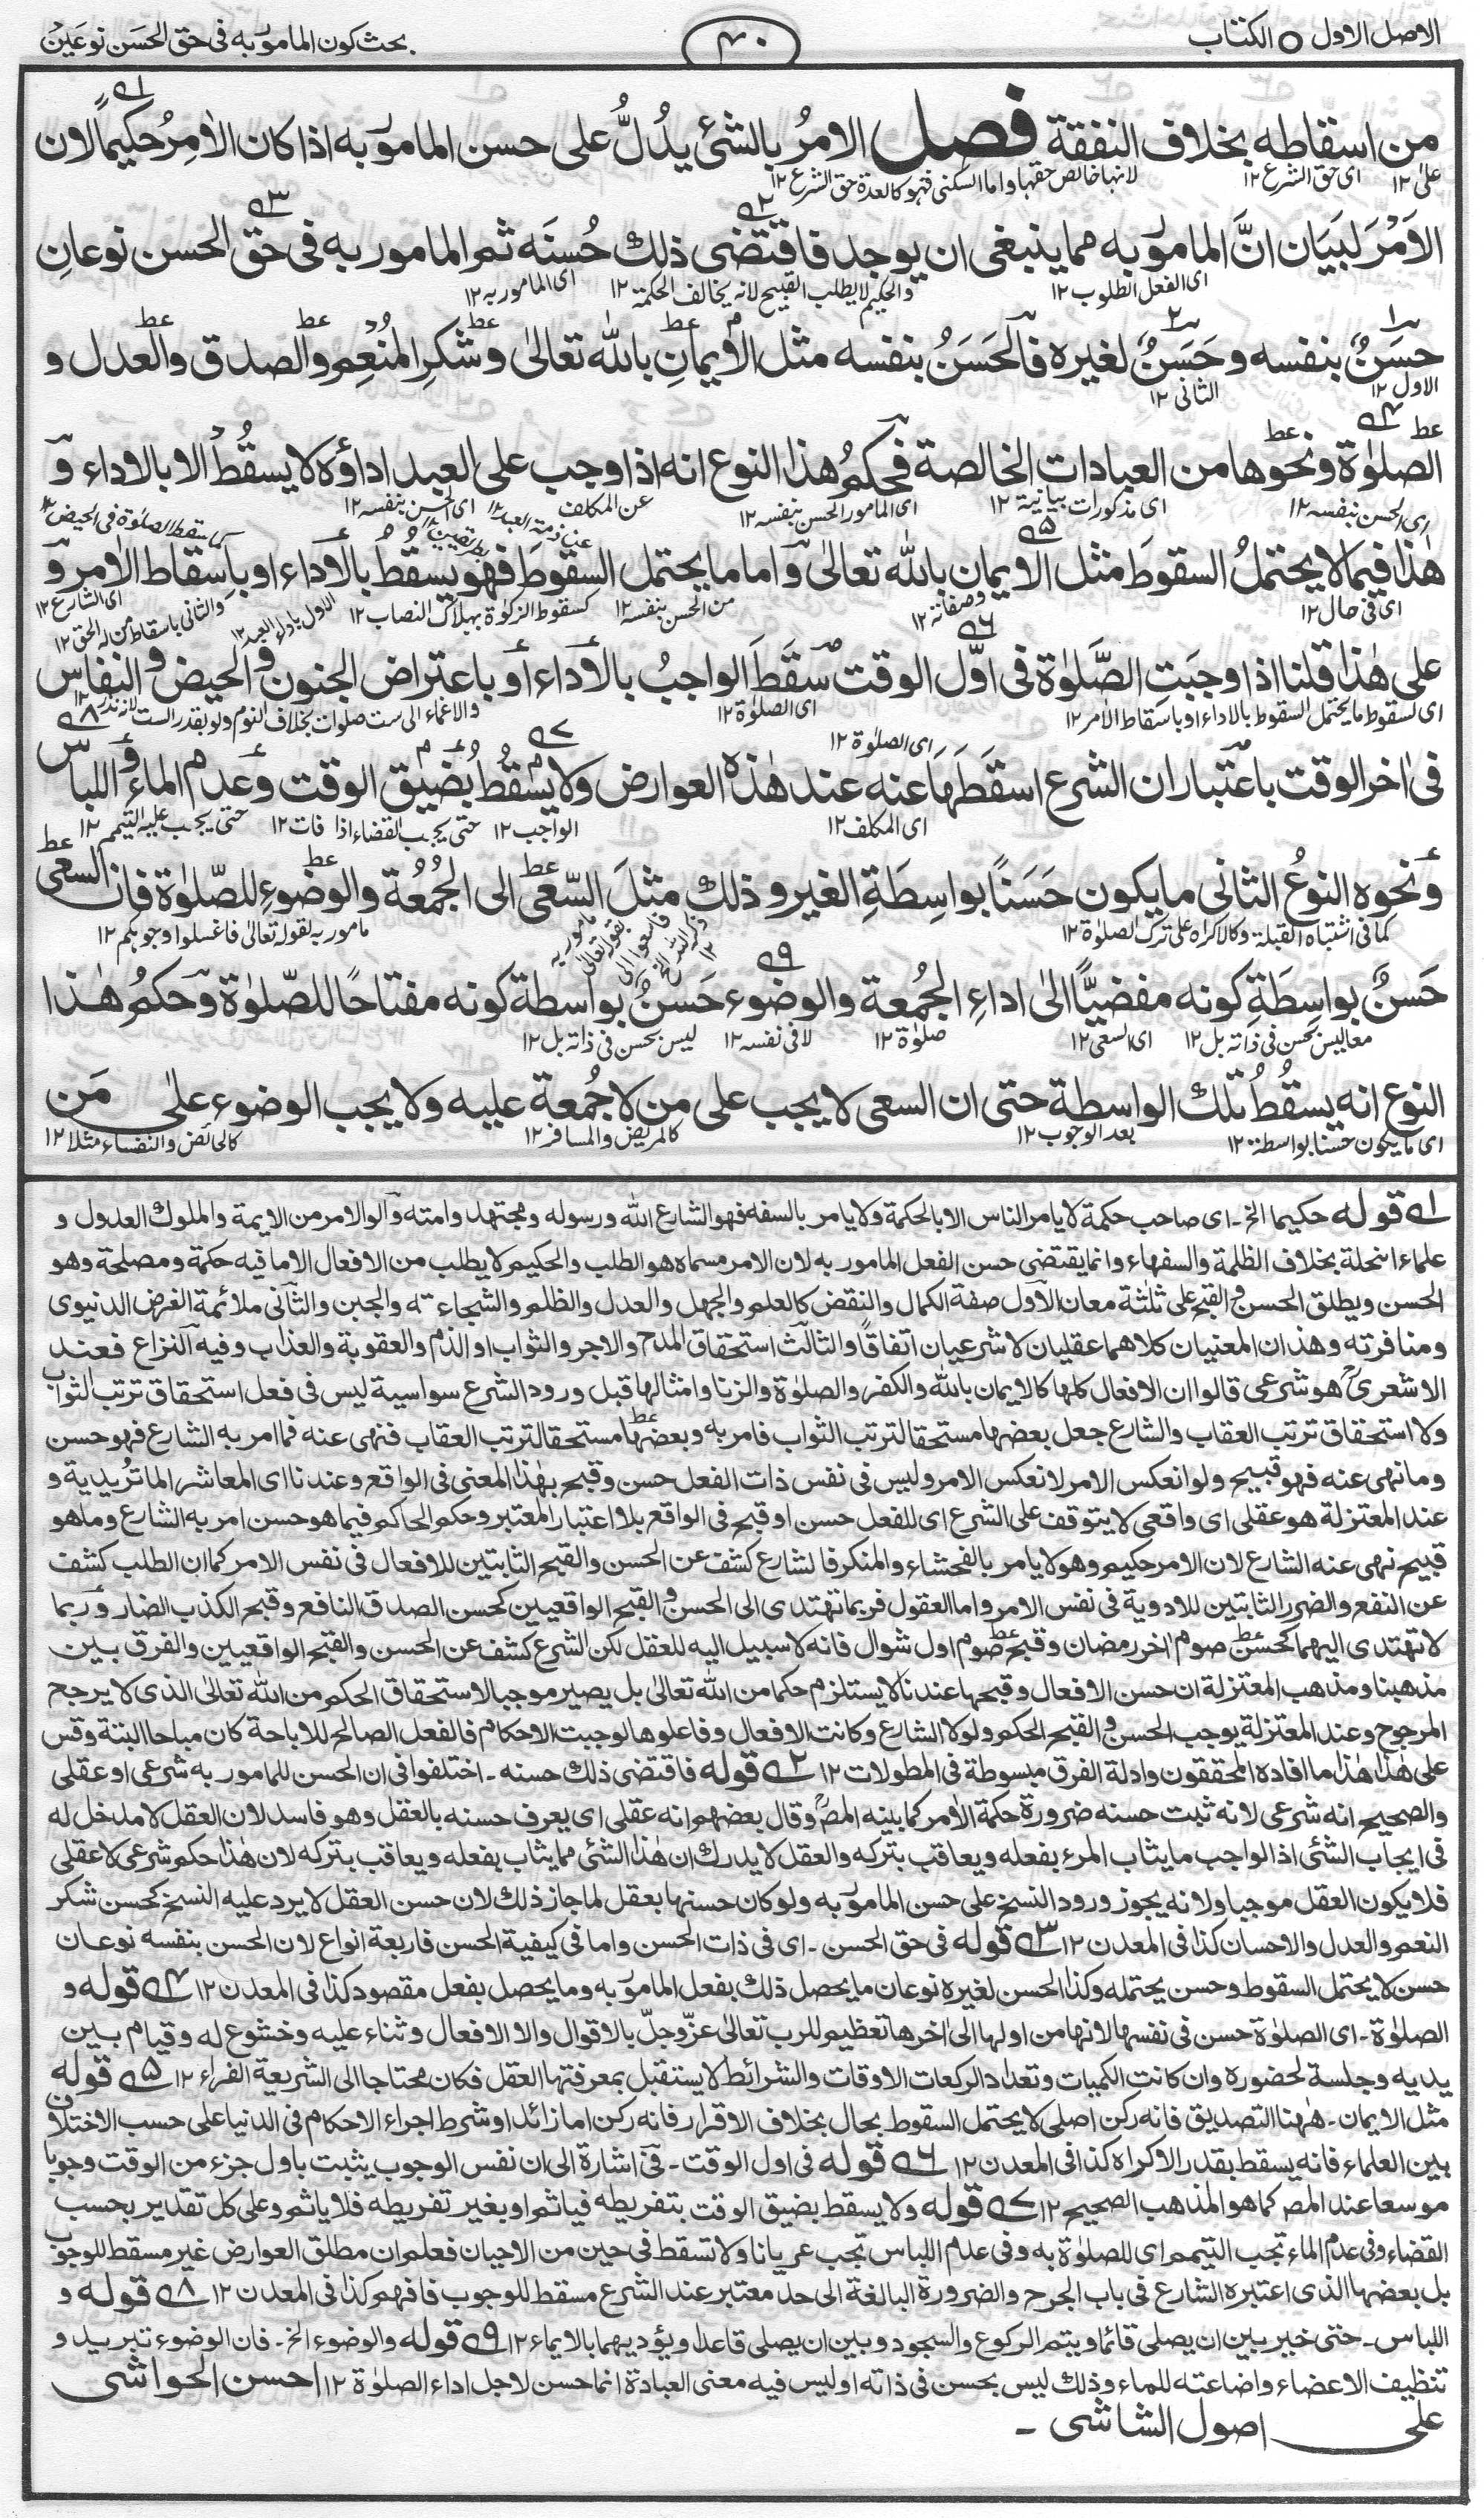 الاصل الاول ○ الكتاب
٤٠
بحث كون المامور به فى حق الحسَن نوعين
من اسقاطه بخلاف النفقة فصل الامرُ بالشئ يدُلُّ على حسن المامور به اذا كان الاٰمِرُ حكيمًا لان
على ١٢ اى حق الشرع ١٢ لانها خالص حقها واما السكنى فهو كالعدة حق الشرع ١٢
الاَمْرَ لبَيَان انَّ المامور به مما ينبغى ان يوجد فاقتضى ذلك حُسنَه ثم المامور به فى حق الحسن نوعانِ
اى الفعل المطلوب ١٢ والحكيم لا يطلب القبيح لانه يخالف الحكمة ١٢ اى المامور به ١٢
حسَنٌ بنفسه وحَسَنٌ لغيره فالحَسَنُ بنفسه مثل الايمانِ بالله تعالىٰ وشكرِ المُنعِم والصدق والعدل و
الاول ١٢ الثانى ١٢
الصلوٰة ونحوها من العبادات الخالصة فحكمُ هذا النوع انه اذا وجب على العبد اداؤه لا يسقُطُ الا بالاداء و
اى الحسن بنفسه ١٢ اى مذكورات بيانية ١٢ اى المامور الحسن بنفسه ١٢ عن المكلف اى الحسن بنفسه ١٢ كما سقط الصلوٰة فى الحيض ١٢
هٰذا فيما لا يحتملُ السقوطَ مثل الايمانِ بالله تعالىٰ واما ما يحتمل السقوطَ فهو يسقُط بالاداء او باسقاط الاٰمر و
اى فى حال ١٢ وصفاته ١٢ من الحسن بنفسه ١٢ كسقوط الزكوٰة بهلاك النصاب ١٢ الاول باداء العبد ١٢ والثانى باسقاط من له الحق ١٢ اى الشارع ١٢
على هٰذا قلنا اذا وجبَت الصَّلوٰة فى اوَّل الوقت سقَطَ الواجبُ بالاداء او باعتراض الجنون والحيض والنفاس
اى سقوط ما يحتمل السقوط بالاداء او باسقاط الامر ١٢ اى الصلوٰة ١٢ والاغماء الى ست صلوات بخلاف النوم ولو بقدر الست لانه ندر ١٢
فى اٰخر الوقت باعتبار ان الشرع اسقَطَهَا عنه عند هٰذه العوارض ولا يسقُطُ بضيق الوقت وعدم الماء واللباس
اى الصلوٰة ١٢ اى المكلف ١٢ الواجب ١٢ حتى يجب القضاء اذا فات ١٢ حتى يجب عليه التيمم ١٢
ونحوه النوعُ الثانى ما يكون حَسَنًا بواسِطَةِ الغير وذلك مثلَ السّعى الى الجُمُعة والوضوءِ للصّلوٰة فان السعى
كما فى اشتباه القبلة وكالاكراه على ترك الصلوٰة ١٢ مامور به بقوله تعالى فاسعوا الى ذكر الله الخ ١٢ مامور به لقوله تعالى فاغسلوا وجوهكم ١٢
حَسَنٌ بواسِطَةِ كونه مفضيًّا الىٰ اداءِ الجُمُعة والوضوء حَسَنٌ بواسطة كونه مفتاحًا للصّلوٰة وحكمُ هٰذا
ليس بحسن فى ذاته بل ١٢ اى السعى ١٢ صلوٰة ١٢ لا فى نفسه ١٢ ليس بحسن فى ذاته بل ١٢
النوع انه يسقُطُ بتلك الواسطة حتى ان السعى لا يجب على من لا جُمعة عليه ولا يجب الوضوء علىٰ مَن
اى ما يكون حسنا بواسطة ١٢ بعد الوجوب ١٢ كالمريض والمسافر ١٢ كالحائض والنفساء مثلا ١٢
١ قوله حكيما الخ۔ اى صاحب حكمة لا يامر الناس الا بالحكمة ولا يامر بالسفه فهو الشارع الله ورسوله ومجتهد وامته واولوالامر من الايمة والملوك العدول و
علماء النحلة بخلاف الظلمة والسفهاء وانما يقتضى حسن الفعل المامور به لان الامر مسماه هو الطلب والحكيم لا يطلب من الافعال الا ما فيه حكمة ومصلحة وهو
الحسن ويطلق الحسن والقبح على ثلٰثة معان الاول صفة الكمال والنقض كالعلم والجهل والعدل والظلم والشجاعة والجبن والثانى ملائمة الغرض الدنيوى
ومنافرته وهذان المعنيان كلاهما عقليان لا شرعيان اتفاقًا والثالث استحقاق المدح والاجر والثواب او الذم والعقوبة والعذاب وفيه النزاع فعند
الاشعرىؒ هو شرعى قالوا ان الافعال كلها كالايمان بالله والكفر والصلوٰة والزنا وامثالها قبل ورود الشرع سواسية ليس فى فعل استحقاق ترتب الثواب
ولا استحقاق ترتب العقاب والشارع جعل بعضها مستحقا لترتب الثواب فامر به وبعضها مستحقا لترتب العقاب فنهى عنه فما امر به الشارع فهو حسن
وما نهى عنه فهو قبيح ولو انعكس الامر لانعكس الامر وليس فى نفس ذات الفعل حسن وقبح بهٰذا المعنى فى الواقع وعندنا اى المعاشر الماتُريدية و
عند المعتزلة هو عقلى اى واقعى لا يتوقف على الشرع اى للفعل حسن او قبح فى الواقع بلا اعتبار المعتبر وحكم الحاكم فيما هو حسن امر به الشارع وما هو
قبيح نهى عنه الشارع لان الامر حكيم وهو لا يامر بالفحشاء والمنكر فالشارع كشف عن الحسن والقبح الثابتين للافعال فى نفس الامر كما ان الطلب كشف
عن النفع والضرر الثابتين للادوية فى نفس الامر واما العقول فربما تهتدى الى الحسن والقبح الواقعيين كحسن الصدق النافع وقبح الكذب الضار وربما
لا تهتدى اليهما كحسن صوم اٰخر رمضان وقبح صوم اول شوال فانه لا سبيل اليه للعقل لكن الشرع كشف عن الحسن والقبح الواقعيين والفرق بين
مذهبنا ومذهب المعتزلة ان حسن الافعال وقبحها عندنا لا يستلزم حكما من الله تعالىٰ بل يصير موجبا لاستحقاق الحكم من الله تعالىٰ الذى لا يرجح
المرجوح وعند المعتزلة يوجب الحسن والقبح الحكم ولولا الشارع وكانت الافعال وفاعلوها لوجبت الاحكام فالفعل الصالح للاباحة كان مباحا البتة وقس
على هٰذا هٰذا ما افاده المحققون وادلة الفرق مبسوطة فى المطولات ١٢ ٢ قوله فاقتضى ذلك حسنه۔ اختلفوا فى ان الحسن للمامور به شرعى او عقلى
والصحيح انه شرعى لانه ثبت حسنه ضرورة حكمة الاٰمر كما بينه المصؒ وقال بعضهم انه عقلى اى يعرف حسنه بالعقل وهو فاسد لان العقل لا مدخل له
فى ايجاب الشئى اذ الواجب ما يثاب المرء بفعله ويعاقب بتركه والعقل لا يدرك ان هٰذا الشئى مما يثاب بفعله ويعاقب بتركه لان هٰذا حكم شرعى لا عقلى
فلا يكون العقل موجبا ولانه يجوز ورود النسخ على حسن المامور به ولو كان حسنها بعقل لما جاز ذلك لان حسن العقل لا يرد عليه النسخ كحسن شكر
النعم والعدل والاحسان كذا فى المعدن ١٢ ٣ قوله فى حق الحسن۔ اى فى ذات الحسن واما فى كيفية الحسن فاربعة انواع لان الحسن بنفسه نوعان
حسن لا يحتمل السقوط وحسن يحتمله وكذا الحسن لغيره نوعان ما يحصل ذلك بفعل المامور به وما يحصل بفعل مقصود كذا فى المعدن ١٢ ٤ قوله و
الصلوٰة۔ اى الصلوٰة حسن فى نفسها لانها من اولها الىٰ اٰخرها تعظيم للرب تعالىٰ عزّوجلّ بالاقوال والا الافعال وثناء عليه وخشوع له وقيام بين
يديه وجلسة لحضوره وان كانت الكميات وتعداد الركعات الاوقات والشرائط لا يستقبل بمعرفتها العقل فكان محتاجا الى الشريعة الغراء ١٢ ٥ قوله
مثل الايمان۔ هٰهنا التصديق فانه ركن اصلى لا يحتمل السقوط بحال بخلاف الاقرار فانه ركن اما زائد او شرط اجراء الاحكام فى الدنيا على حسب الاختلاف
بين العلماء فانه يسقط بقدر الاكراه كذا فى المعدن ١٢ ٦ قوله فى اول الوقت۔ فى اشارة الى ان نفس الوجوب يثبت باول جزء من الوقت وجوبا
موسعا عند المصؒ كما هو المذهب الصحيح ١٢ ٧ قوله ولا يسقط بضيق الوقت بتفريطه فياثم او بغير تفريطه فلا ياثم وعلى كل تقدير بحسب
القضاء وفى عدم الماء تجب التيمم اى للصلوٰة به وفى عدم اللباس تجب عريانا ولا تسقط فى حين من الاحيان فعلم ان مطلق العوارض غير مسقط للوجوب
بل بعضها الذى اعتبره الشارع فى باب الحرج والضرورة البالغة الى حد معتبر عند الشرع مسقط للوجوب فافهم كذا فى المعدن ١٢ ٨ قوله و
اللباس۔ حتى خير بين ان يصلى قائما ويتم الركوع والسجود وبين ان يصلى قاعدا ويؤديهما بالايماء ١٢ ٩ قوله والوضوء الخ۔ فان الوضوء تبريد و
تنظيف الاعضاء واضاعته للماء وذلك ليس بحسن فى ذاته او ليس فيه معنى العبادة انما حسن لاجل اداء الصلوٰة ١٢ احسن الحواشى
على اصول الشاشى ۔